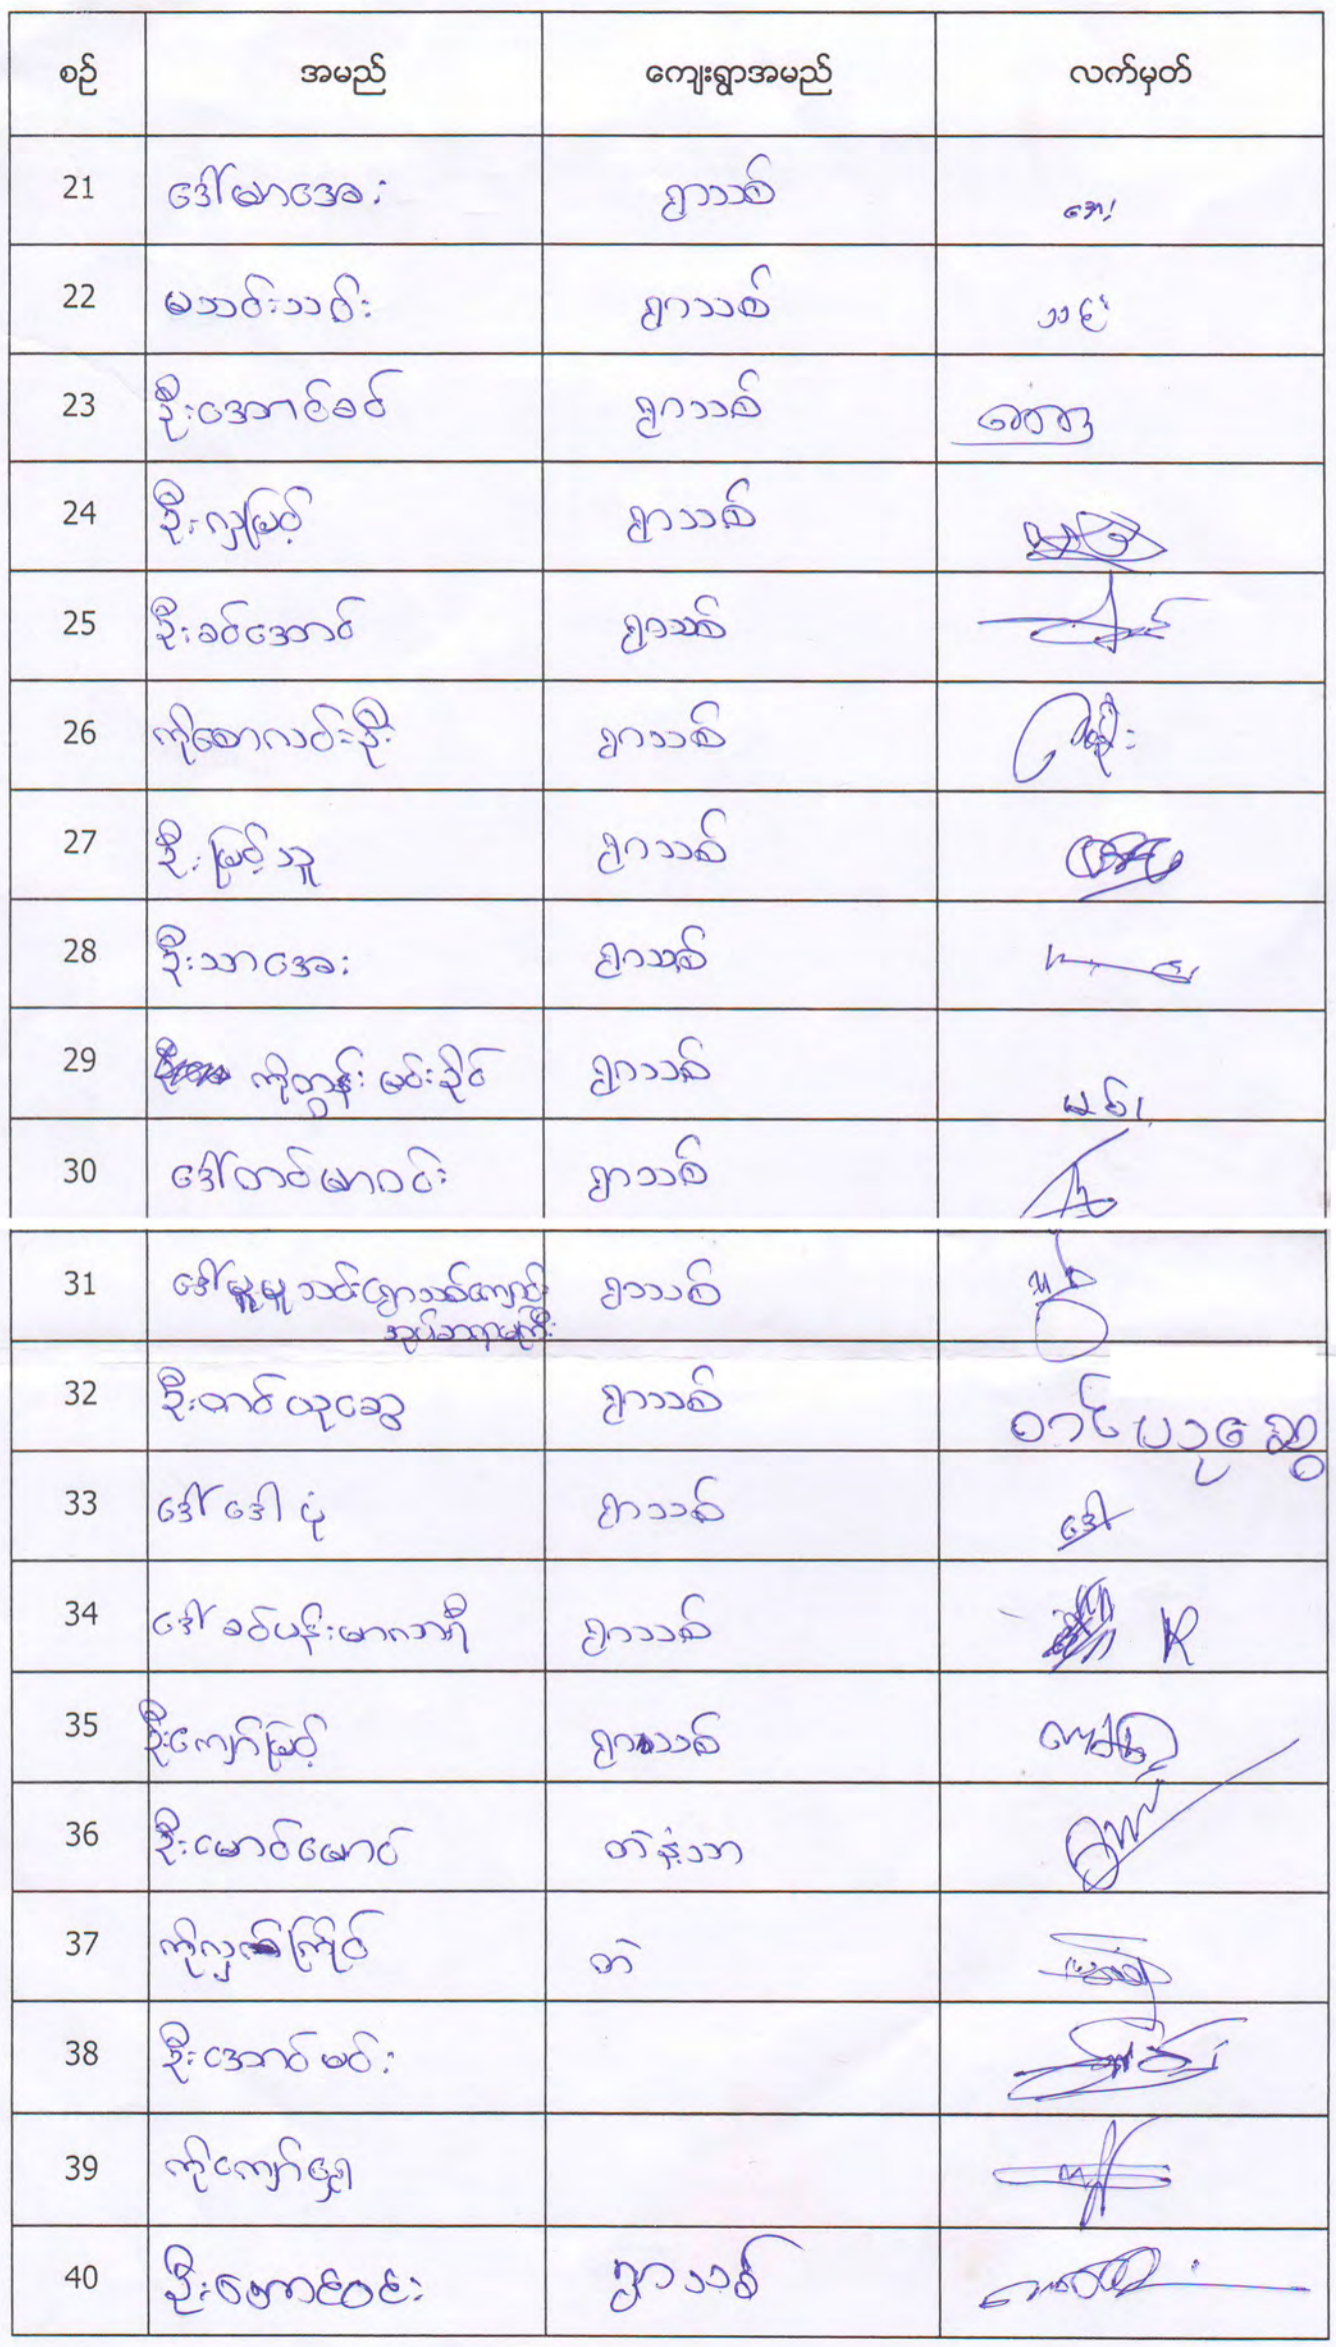 စဉ် အမည် ကျေးရွာအမည် လက်မှတ်
21 ဒေါ်မာအေး ရွာသစ် အေး
22 မသင်းသင်း ရွာသစ်
23 ဦးအောင်ခင် ရွာသစ်
24 ဦးလှမြင့် ရွာသစ်
25 ဦးခင်အောင် ရွာသစ်
26 ကိုစောလင်းဦး ရွာသစ်
27 ဦးမြင့်သူ ရွာသစ်
28 ဦးသာအေး ရွာသစ်
29 ကိုထွန်းမင်းနိုင် ရွာသစ်
30 ဒေါ်တင်မာဝင်း ရွာသစ်
31 ဒေါ်မူမူသင်းရွာသစ်ကျောင်း ရွာသစ်
အုပ်ဆရာမကြီး
32 ဦးတင်ယုဆွေ ရွာသစ်
33 ဒေါ်ဒေါပုံ ရွာသစ် ဒေါ
34 ဒေါ်ခင်ပန်းမာလာရီ ရွာသစ် K
35 ဦးကျော်မြင့် ရွာသစ်
36 ဦးမောင်မောင် တဲနံ့သာ
37 ကိုလှကြိုင် တဲ
38 ဦးအောင်မင်း
39 ကိုကျော်ရွှေ
40 ဦးအောင်ဝင်း ရွာသစ်